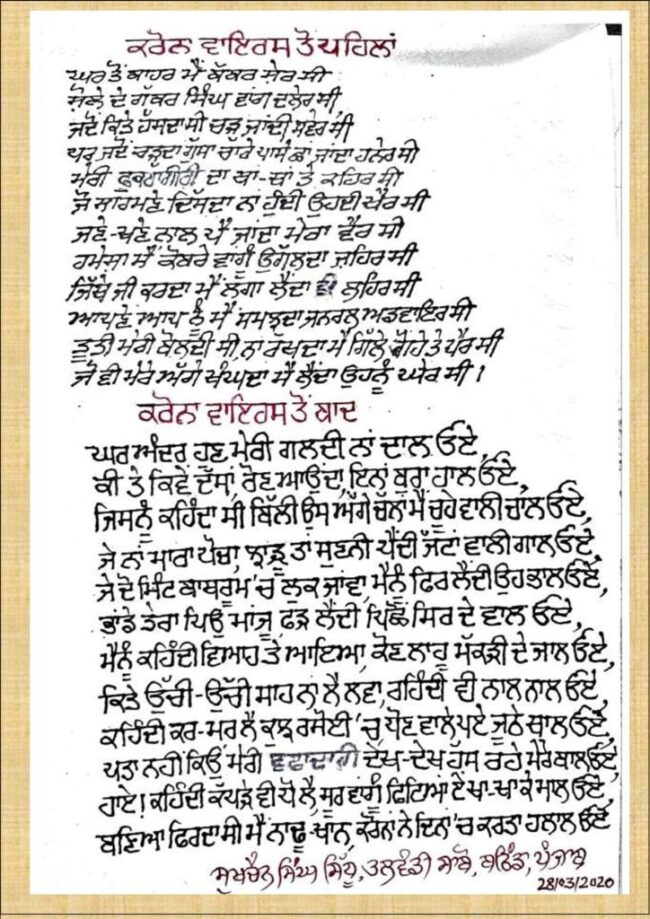 ਕਰੋਨਾ ਵਾਇਰਸ ਤੋਂ ਪਹਿਲਾਂ
ਘਰ ਤੋਂ ਬਾਹਰ ਮੈਂ ਬੱਬਰ ਸ਼ੇਰ ਸੀ
ਸ਼ੋਲੇ ਦੇ ਗੱਬਰ ਸਿੰਘ ਵਾਂਗ ਦਲੇਰ ਸੀ
ਜਦੋਂ ਕਿਤੇ ਹੱਸਦਾ ਸੀ ਚੜ੍ਹ ਜਾਂਦੀ ਸਵੇਰ ਸੀ
ਪਰ ਜਦੋਂ ਚੜ੍ਹਦਾ ਗੁੱਸਾ ਚਾਰੇ ਪਾਸੇ ਛਾਂ ਜਾਂਦਾ ਹਨੇਰ ਸੀ
ਮੇਰੀ ਫੁਕਰਾਗੀਰੀ ਦਾ ਥਾਂ-ਥਾਂ ਤੇ ਕਹਿਰ ਸੀ
ਜੋ ਸਾਹਮਣੇ ਦਿੱਸਦਾ ਨਾਂ ਹੁੰਦੀ ਉਹਦੀ ਖੈਰ ਸੀ
ਜਣੇ-ਖਣੇ ਨਾਲ ਪੈ ਜਾਂਦਾ ਮੇਰਾ ਵੈਰ ਸੀ
ਹਮੇਸ਼ਾ ਮੈਂ ਕੋਬਰੇ ਵਾਂਗੂੰ ਉਗੱਲਦਾ ਜ਼ਹਿਰ ਸੀ
ਜਿੱਥੇ ਜੀ ਕਰਦਾ ਮੈਂ ਲਗਾ ਲੈਂਦਾ ਸੀ ਲਹਿਰ ਸੀ
ਆਪਣੇ ਆਪ ਨੂੰ ਮੈਂ ਸਮਝਦਾ ਜਨਰਲ ਅਡਵਾਇਰ ਸੀ
ਤੂਤੀ ਮੇਰੀ ਬੋਲਦੀ ਸੀ ਨਾਂ ਰੱਖਦਾ ਮੈਂ ਗਿੱਲੇ ਗੋਹੇ ਤੇ ਪੈਰ ਸੀ
ਜੋ ਵੀ ਮੇਰੇ ਅੱਗੇ ਖੰਘਦਾ ਮੈਂ ਲੈਂਦਾ ਉਹਨੂੰ ਘੇਰ ਸੀ।
ਕਰੋਨਾ ਵਾਇਰਸ ਤੋਂ ਬਾਦ
ਘਰ ਅੰਦਰ ਹੁਣ ਮੇਰੀ ਗਲਦੀ ਨਾਂ ਦਾਲ ਓਏ,
ਕੀ ਤੇ ਕਿਵੇਂ ਦੱਸਾਂ, ਰੋਣ ਆਉਂਦਾ, ਇੰਨਾਂ ਬੁਰਾ ਹਾਲ ਓਏ,
ਜਿਸਨੂੰ ਕਹਿੰਦਾ ਸੀ ਬਿੱਲੀ ਉਸ ਅੱਗੇ ਚੱਲਾਂ ਮੈਂ ਚੂਹੇ ਵਾਲੀ ਚਾਲ ਓਏ,
ਜੇ ਨਾਂ ਮਾਰਾਂ ਪੋਚਾ, ਝਾੜੂ ਤਾਂ ਸੁਣਨੀ ਪੈਂਦੀ ਜੱਟਾਂ ਵਾਲੀ ਗਾਲ ਓਏ,
ਜੇ ਦੋ ਮਿੰਟ ਬਾਥਰੂਮ 'ਚ ਲੁਕ ਜਾਂਵਾਂ, ਮੈਨੂੰ ਫਿਰ ਲੈਂਦੀ ਉਹ ਭਾਲ ਓਏ,
ਭਾਂਡੇ ਤੇਰਾ ਪਿਉ ਮਾਂਜੂ, ਫੜ ਲੈਂਦੀ ਪਿੱਛੋਂ ਸਿਰ ਦੇ ਵਾਲ ਓਏ,
ਮੈਨੂੰ ਕਹਿੰਦੀ ਵਿਆਹ ਤੇ ਆਇਆ, ਕੋਣ ਲਾਹੂ ਮੱਕੜੀ ਦੇ ਜਾਲ ਓਏ,
ਕਿਤੇ ਉੱਚੀ-ਉੱਚੀ ਸਾਹ ਨਾਂ ਲੈ ਲਵਾਂ, ਰਹਿੰਦੀ ਵੀ ਨਾਲ ਨਾਲ ਓਏ,
ਕਹਿੰਦੀ ਕਰ-ਮਰ ਲੈ ਕੁਝ ਰਸੋਈ 'ਚ, ਧੋਣ ਵਾਲੇ ਪਏ ਜੂਠੇ ਥਾਲ ਓਏ,
ਪਤਾ ਨਹੀਂ ਕਿਉਂ ਮੇਰੀ ਵਫਾਦਾਰੀ ਦੇਖ-ਦੇਖ ਹੱਸ ਰਹੇ ਮੇਰੇ ਬਾਲ ਓਏ,
ਹਾਏ! ਕਹਿੰਦੀ ਕੱਪੜੇ ਵੀ ਧੋ ਲੈ, ਸੂਰ ਵਾਂਗੂੰ ਫਿੱਟਿਆ ਏਂ ਖਾ-ਖਾ ਕੇ ਮਾਲ ਓਏ,
ਬਣਿਆ ਫਿਰਦਾ ਸੀ ਮੈਂ ਨਾਢੂ-ਖਾਨ, ਕਰੋਨਾ ਨੇ ਦਿਨਾਂ 'ਚ ਕਰਤਾ ਹਲਾਲ ਓਏ
ਸੁਖਚੈਨ ਸਿੰਘ ਸਿੱਧੂ, ਤਲਵੰਡੀ ਸਾਬੋ, ਬਠਿੰਡਾ, ਪੰਜਾਬ
28/03/2020